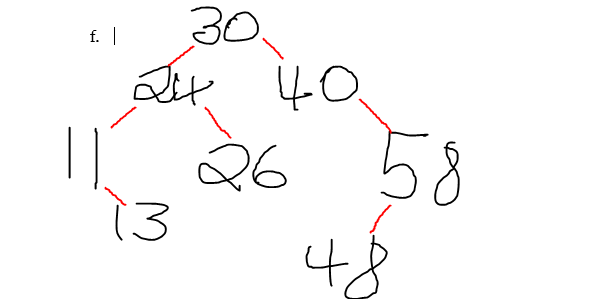 f.
30
24 40
11 26 58
13 48